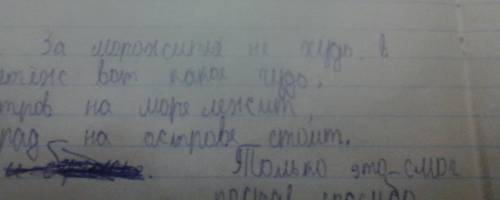 За морожития не худо. в
етёж вот какое чудо:
тров на море лежит,
рад на острове стоит.
Только это смог